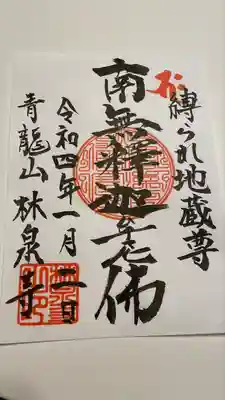 縛られ地蔵尊
南無釋迦牟尼佛
令和四年一月二日
青龍山 林泉寺